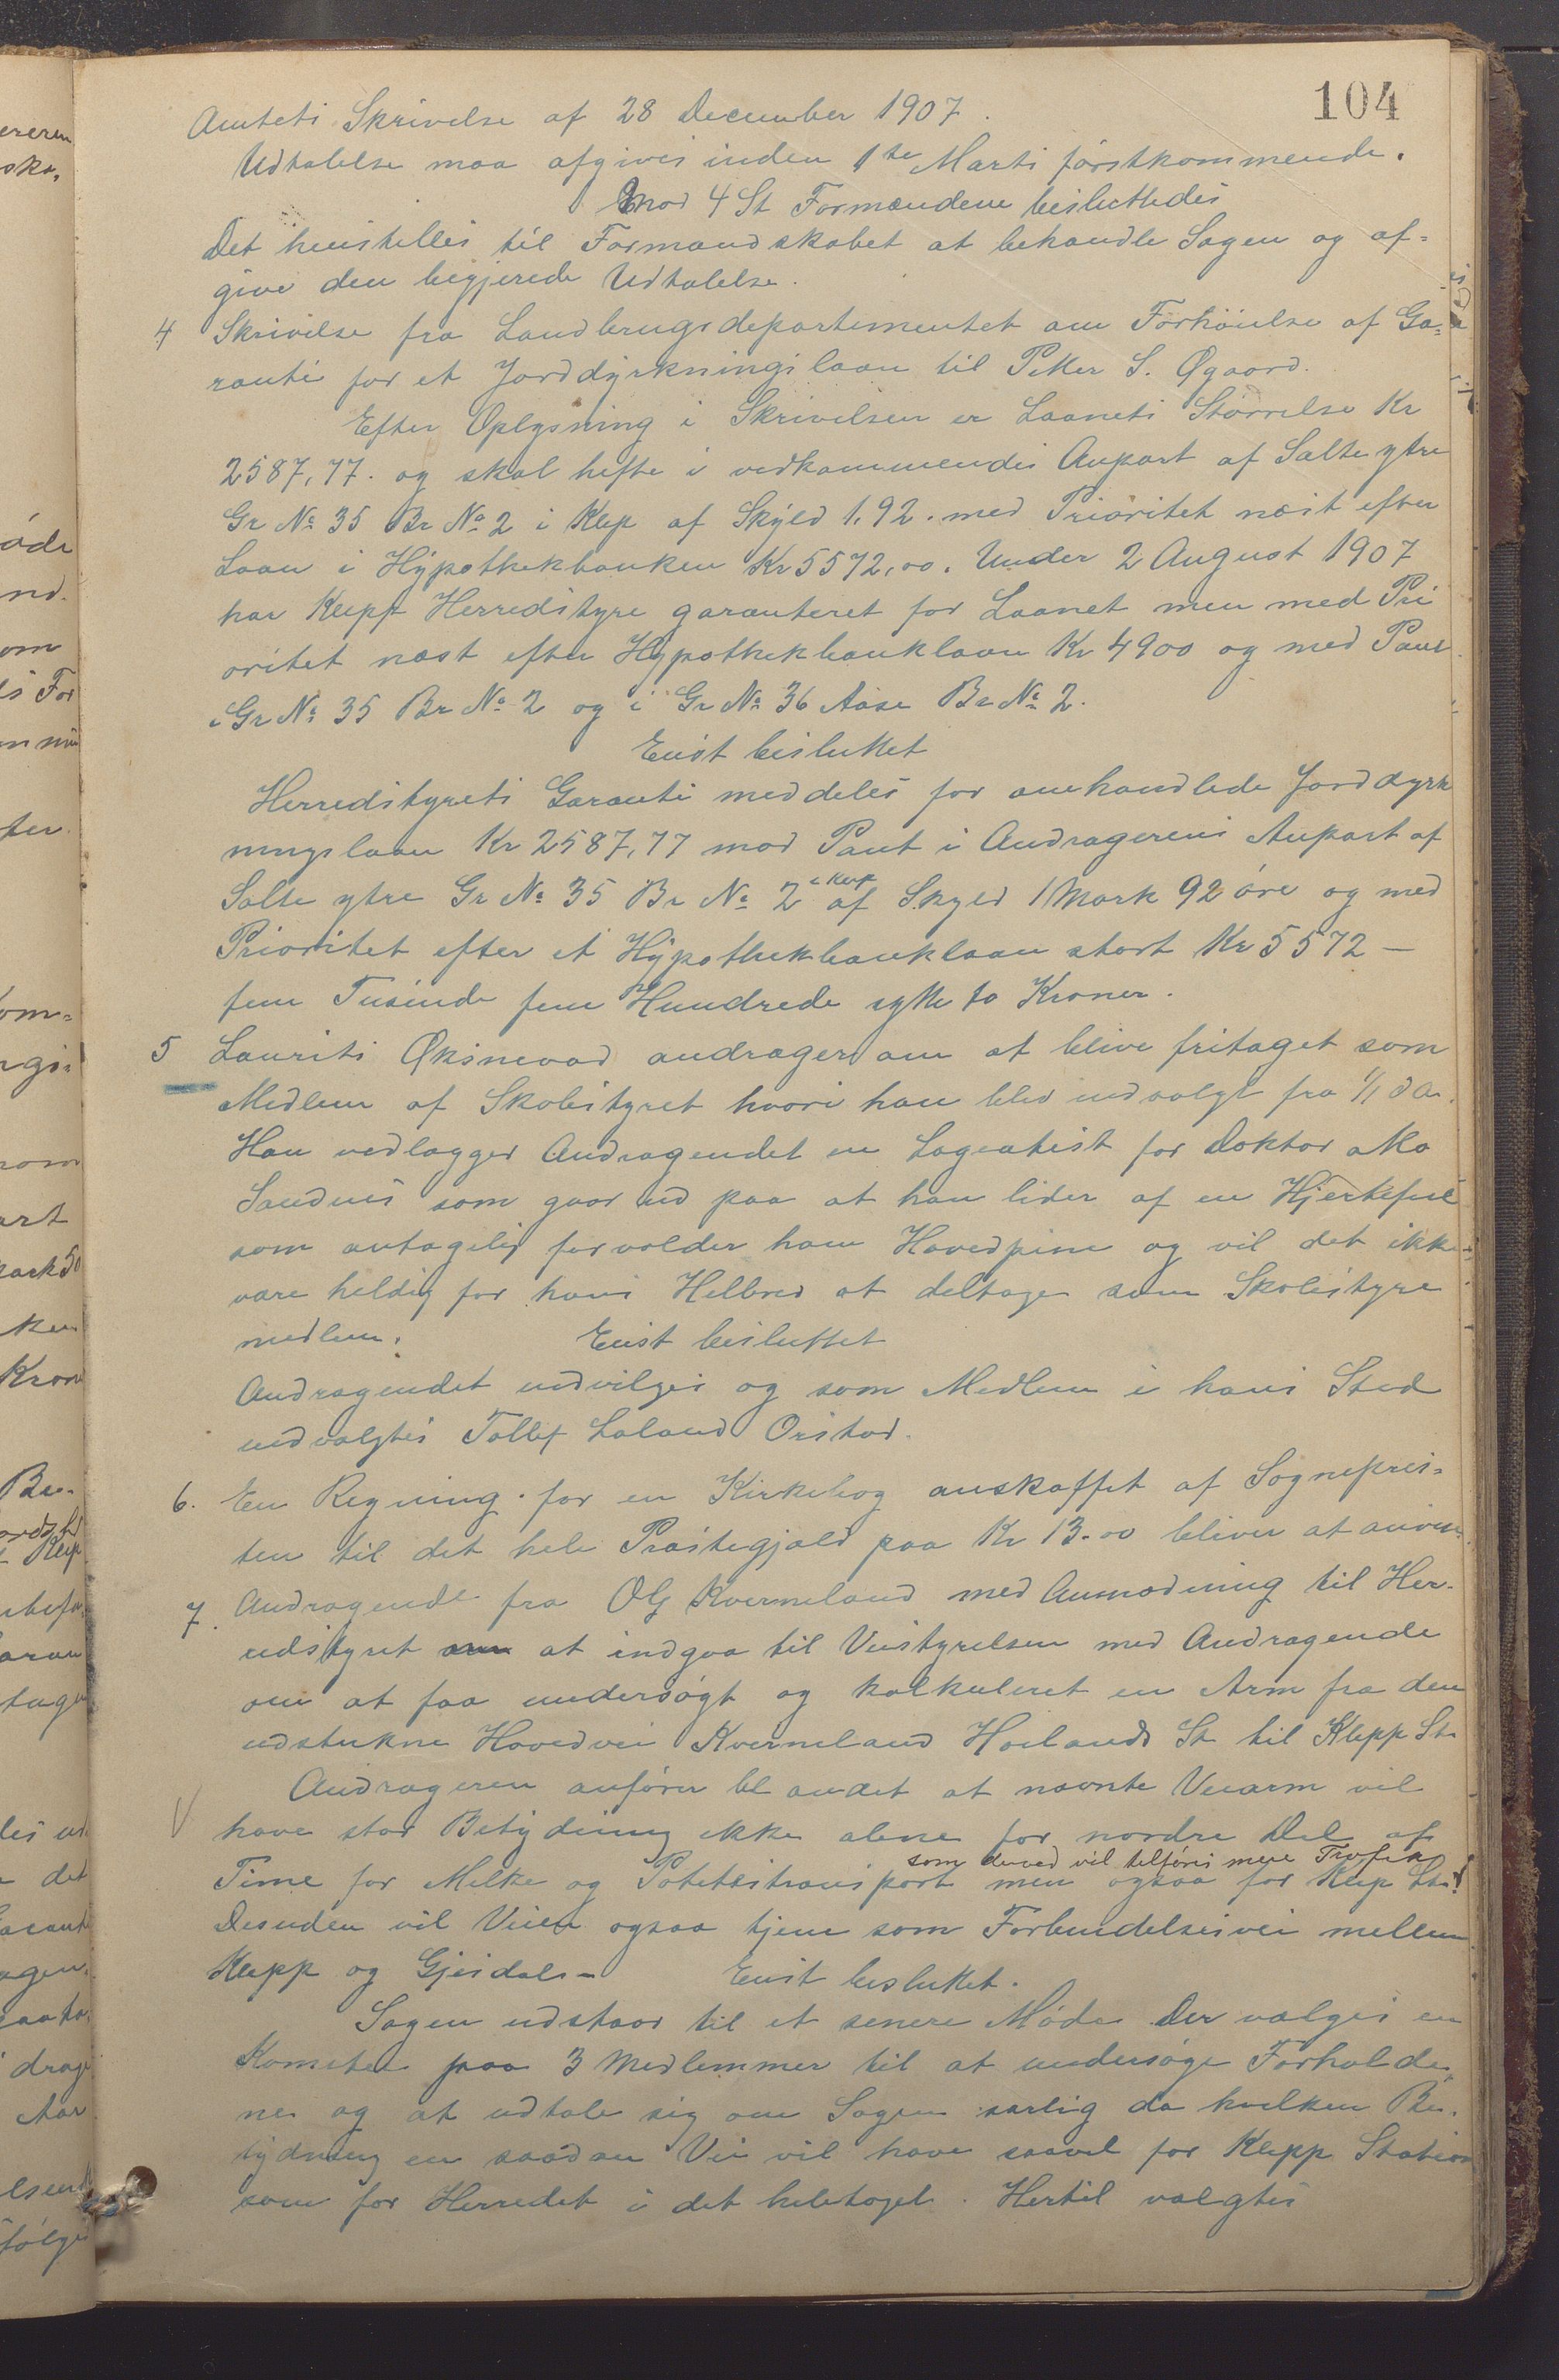 104
Amtets Skrivelse af 28 December 1907.
Udtalelse maa afgives inden 1ste Marts förstkommende.
Mod 4 St Formændene besluttedes
Det henstilles til Formandskabet at behandle Sagen og af=
give den begjerede Udtalelse.
4 Skrivelse fra Landbrugsdepartementet om Forhöielse af Ga=
ranti for et Jorddyrkningslaan til Peter S. Øgaard.
Efter Oplysning i Skrivelsen er Laanets Störrelse Kr
2587,77. og skal hefte i vedkommendes Anpart af Salte ytre
Gr № 35 Br № 2 i Klep af Skyld 1,92. med Prioritet næst efter
Laan i Hypothekbanken Kr 5572,00. Under 2 August 1907
har Klepp Herredstyre garanteret for Laanet men med Pri
oritet næst efter Hypothekbanklaan Kr 4900 og med Pant
i Gr № 35 Br № 2 og i Gr № 36 Aase Br № 2.
Enst besluttet
Herredstyrets Garanti meddeles for omhandlede Jorddyrk
ningslaan Kr 2587,77 mod Pant i Andragerens Anpart af
Salte ytre Gr № 35 Br № 2 i Klep af Skyld 1 Mark 92 öre og med
Prioritet efter et Hypothekbanklaan stort Kr 5572 —
fem Tusinde fem Hundrede sytti to Kroner.
5 Laurits Øksnevad andrager om at blive fritaget som
Medlem af Skolestyret hvori han blev indvalgt fra 1/1 d A.
Han vedlægger Andragendet en Lægeatest for Doktor Mo
Sandnes som gaar ud paa at han lider af en Hjertefeil
som antagelig forvolder ham Hovedpine og vil det ikke
være heldig for hans Helbred at deltage som Skolestyre
medlem. Enst besluttet
Andragendet indvilges og som Medlem i hans Sted
indvalgtes Tollef Laland Orstad.
6. En Regning for en Kirkebog anskaffet af Sognepres=
ten til det hele Præstegjæld paa Kr 13.00 bliver at anvise
7. Andragende fra O G Kverneland med Anmodning til Her=
redstyret om at indgaa til Veistyrelsen med Andragende
om at faa undersögt og kalkuleret en Arm fra den
udstukne Hovedvei Kverneland Hoilands St til Klepp St.
Andrageren anförer bl andet at nævnte Veiarm vil
have stor Betydning ikke alene for nordre Del af
som derved vil tilföres mere Trafik
Time for Melke og Potetestransport men ogsaa for Klep St.
Desuden vil Veien ogsaa tjene som Forbindelsesvei mellem
Klepp og Gjesdal. – Enst besluttet.
Sagen udstaar til et senere Möde Der vælges en
Komite paa 3 Medlemmer til at undersöge Forholde=
ne og at udtale sig om Sagen særlig da hvilken Be=
tydning en saadan Vei vil have saavel for Klepp Station
som for Herredet i det heletaget. Hertil valgtes